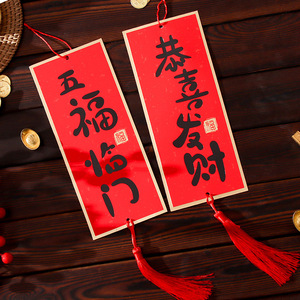 五福临门
恭喜发财